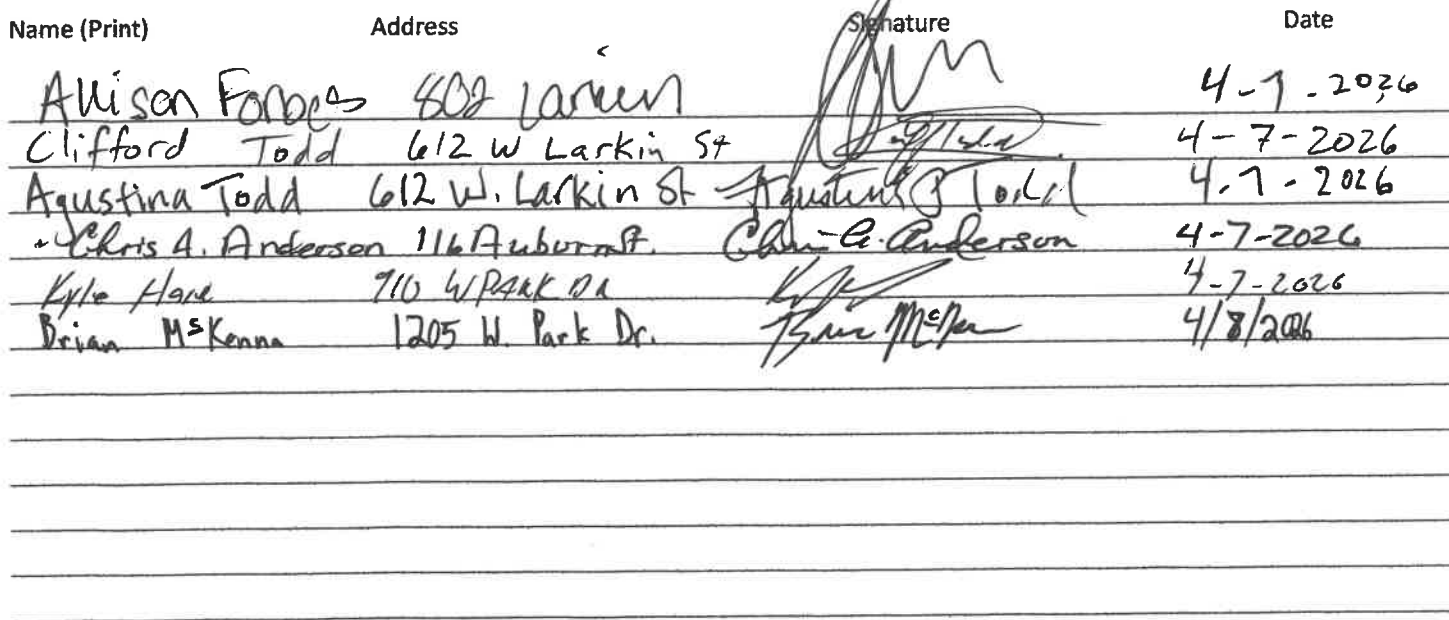 Name (Print) Address Signature Date
Allison Forbes 802 Larkin 4-7-2026
Clifford Todd 612 W Larkin St 4-7-2026
Agustina Todd 612 W. Larkin St Agustina Todd 4-7-2026
Chris A. Anderson 116 Auburn St. Chris A. Anderson 4-7-2026
Kyle 910 W PARK DR 4-7-2026
Brian McKenna 1205 W. Park Dr. 4/8/2026